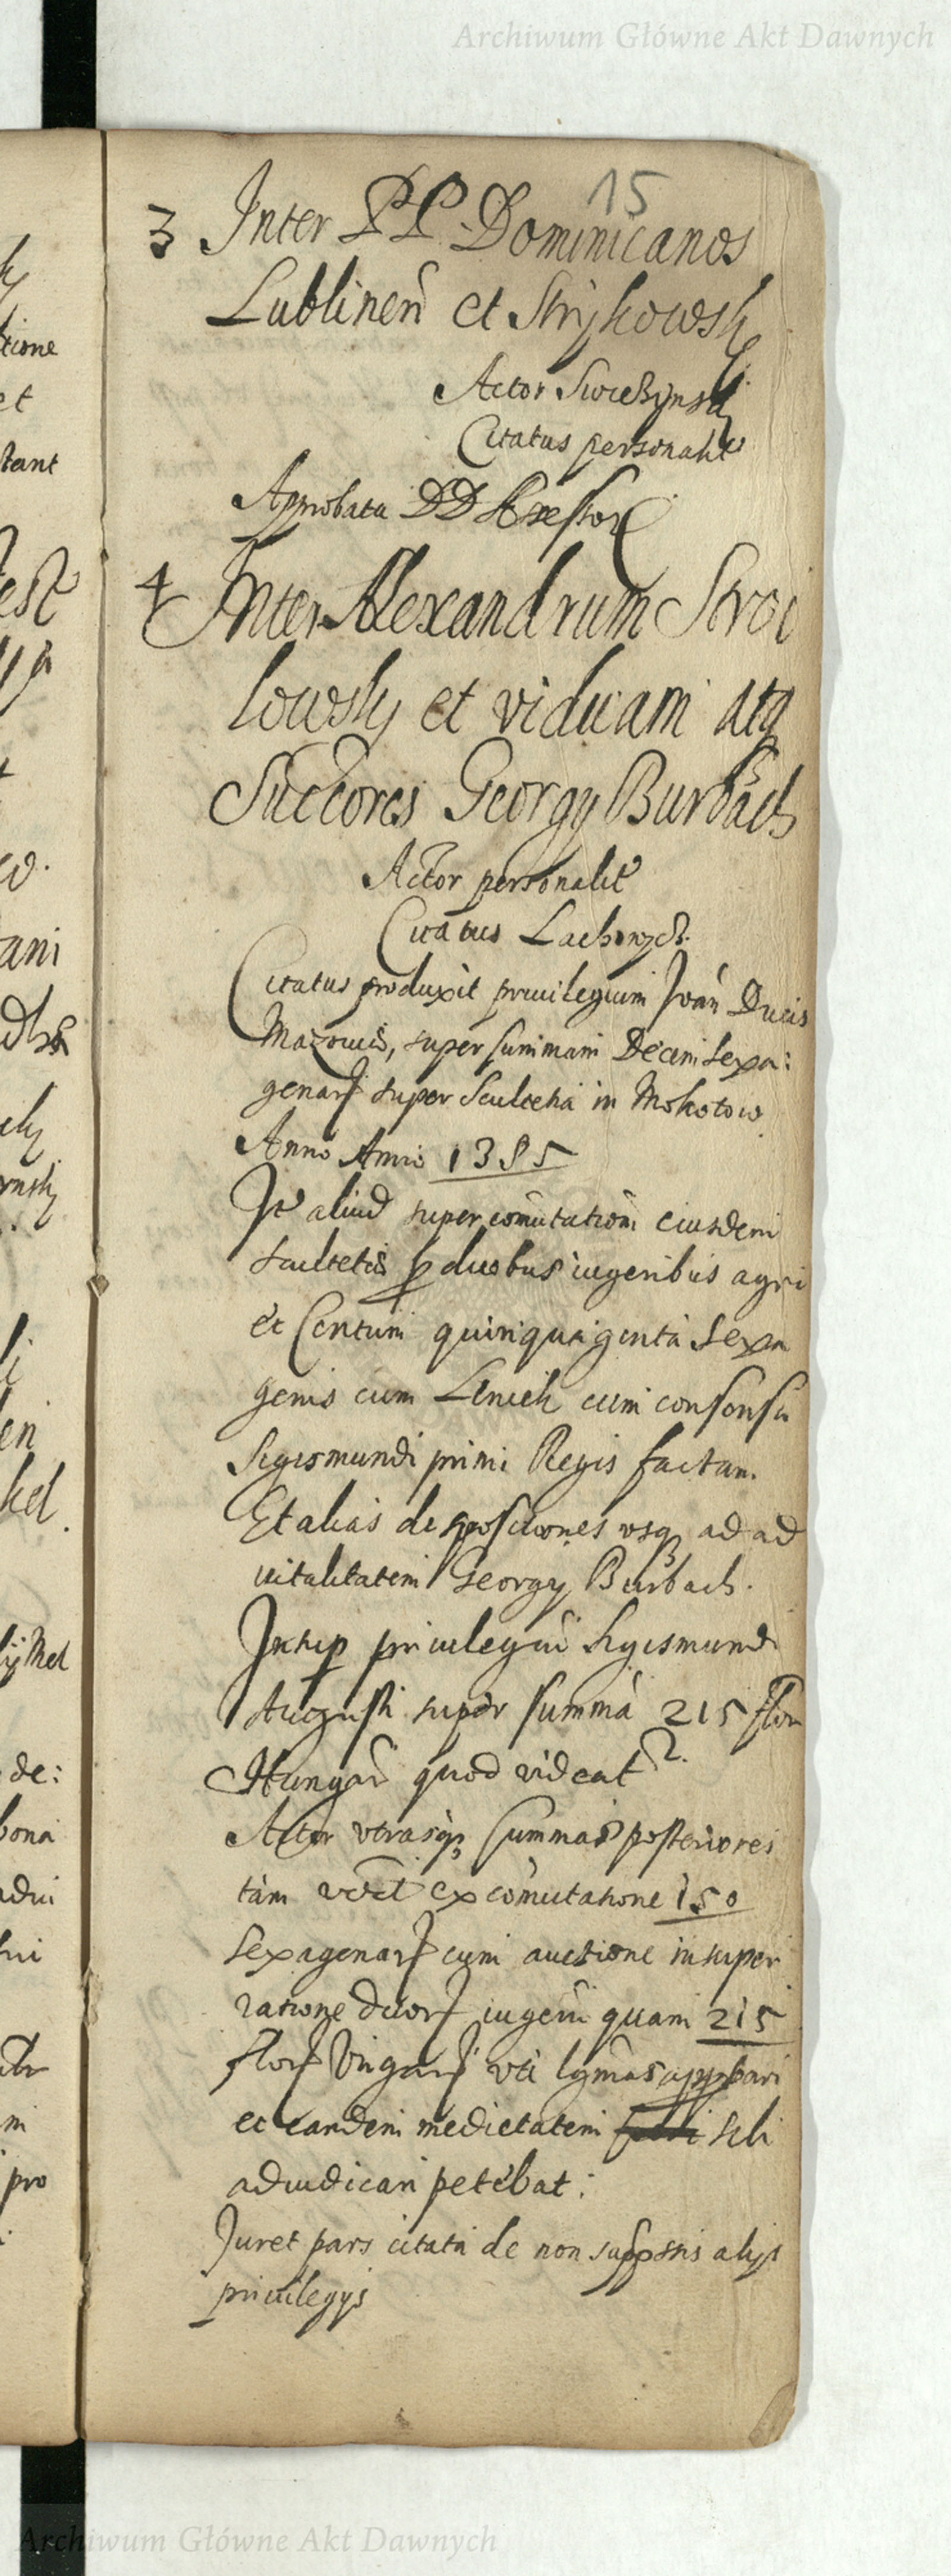 Archiwum Główne Akt Dawnych
15
3 Inter PP Dominicanos
Lublinen et Strykowsky
Actor Swieszynsky
Citatus personalit
Aprobata DD
4 Inter Alexandrum Stroi
lowsky et viduam atq
Succores Georgy Burbach
Actor personalit
Citatus
Citatus produxit privilegium Joan Ducis
Mazovie, super summam Decem sexa:
genarf super Scultetia in Mokotow
Anno 1385
It aliud super comutation eiusdem
scultetis p duobus iugeribus agri
et Centum quinquaginta sexa
genis cum cum consensu
Sigismundi primi Regis factam.
Et alias dispositiones usq ad ad
vitalitatem Georgy Burbach.
Insup privilegiu Sigismundi
Augusti super summa 215 flor
Hungar quod videat
Actor utrasq summas posteriores
tam ex comutatione 150
sexagenarf cum auctione insuper
ratione duorf iugeru quam 215
florf Ungarf uti approbari
et eandem medietatem sibi
adiudicari petebat:
Juret pars citata de non alijs
privilegijs
tione
et
tant
ani
de:
bona
pro
Archiwum Główne Akt Dawnych